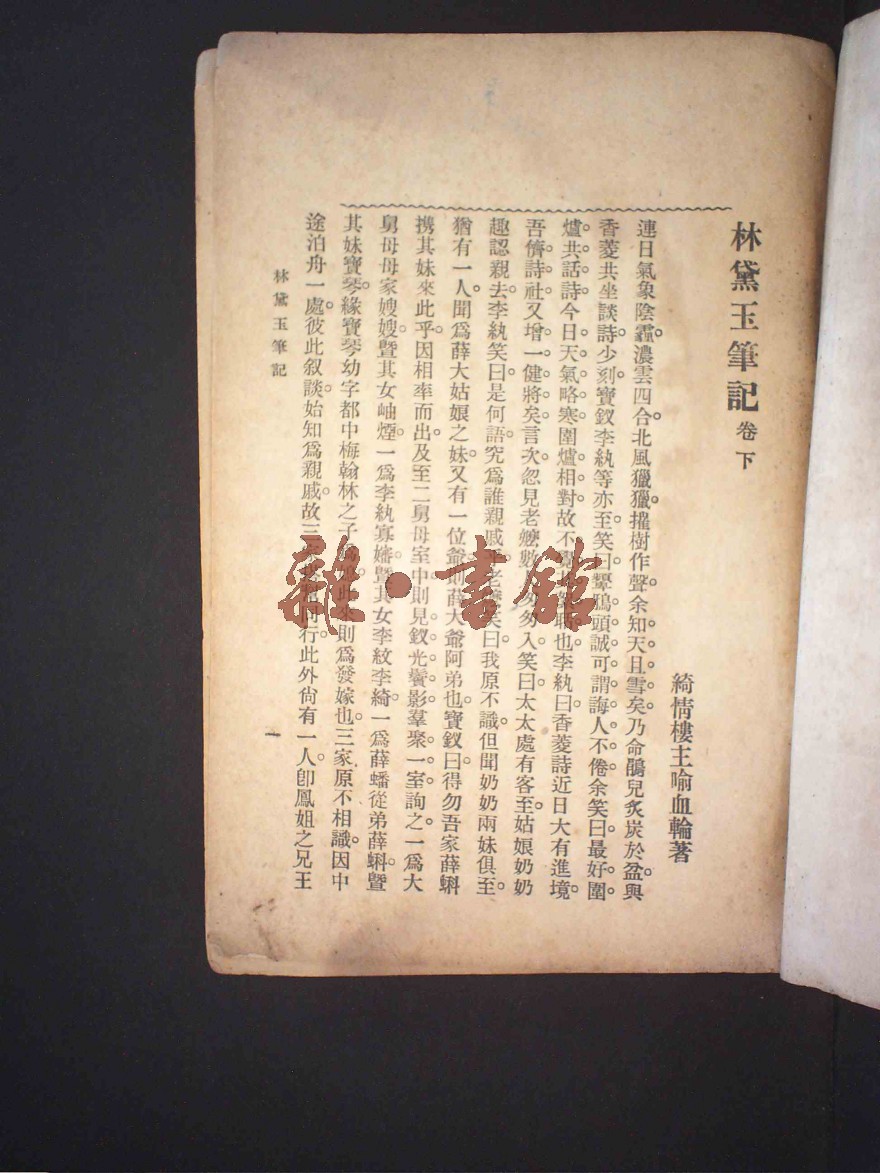 林黛玉筆記 卷下
綺情樓主喻血輪著
連日氣象陰霾。濃雲四合。北風獵獵。摧樹作聲。余知天且雪矣。乃命鵑兒炙炭於盆。與
香菱共坐談詩。少刻。寶釵李紈等亦至。笑曰。顰鴉頭誠可謂誨人不倦。余笑曰。最好圍
爐共話詩。今日天氣略寒。圍爐相對。故不也。李紈曰。香菱詩近日大有進境。
吾儕詩社又增一健將矣。言次。忽見老嬤數匆入。笑曰。太太處有客至。姑娘奶奶
趣認親去。李紈笑曰。是何語。究爲誰親戚老笑曰。我原不識。但聞奶奶兩妹俱至。
猶有一人。聞爲薛大姑娘之妹。又有一位爺。則薛大爺阿弟也。寶釵曰。得勿吾家薛蝌
携其妹來此乎。因相率而出。及至二舅母室中。則見釵光鬢影。羣聚一室。詢之。一爲大
舅母母家嫂嫂。暨其女岫煙。一爲李紈寡嬸。暨其女李紋李綺。一爲薛蟠從弟薛蝌。暨
其妹寶琴。緣寶琴幼字都中梅翰林之子則爲發嫁也。三家原不相識。因中
途泊舟一處。彼此叙談。始知爲親戚。故三同行。此外尙有一人。卽鳳姐之兄王
林黛玉筆記
一
雜·書館